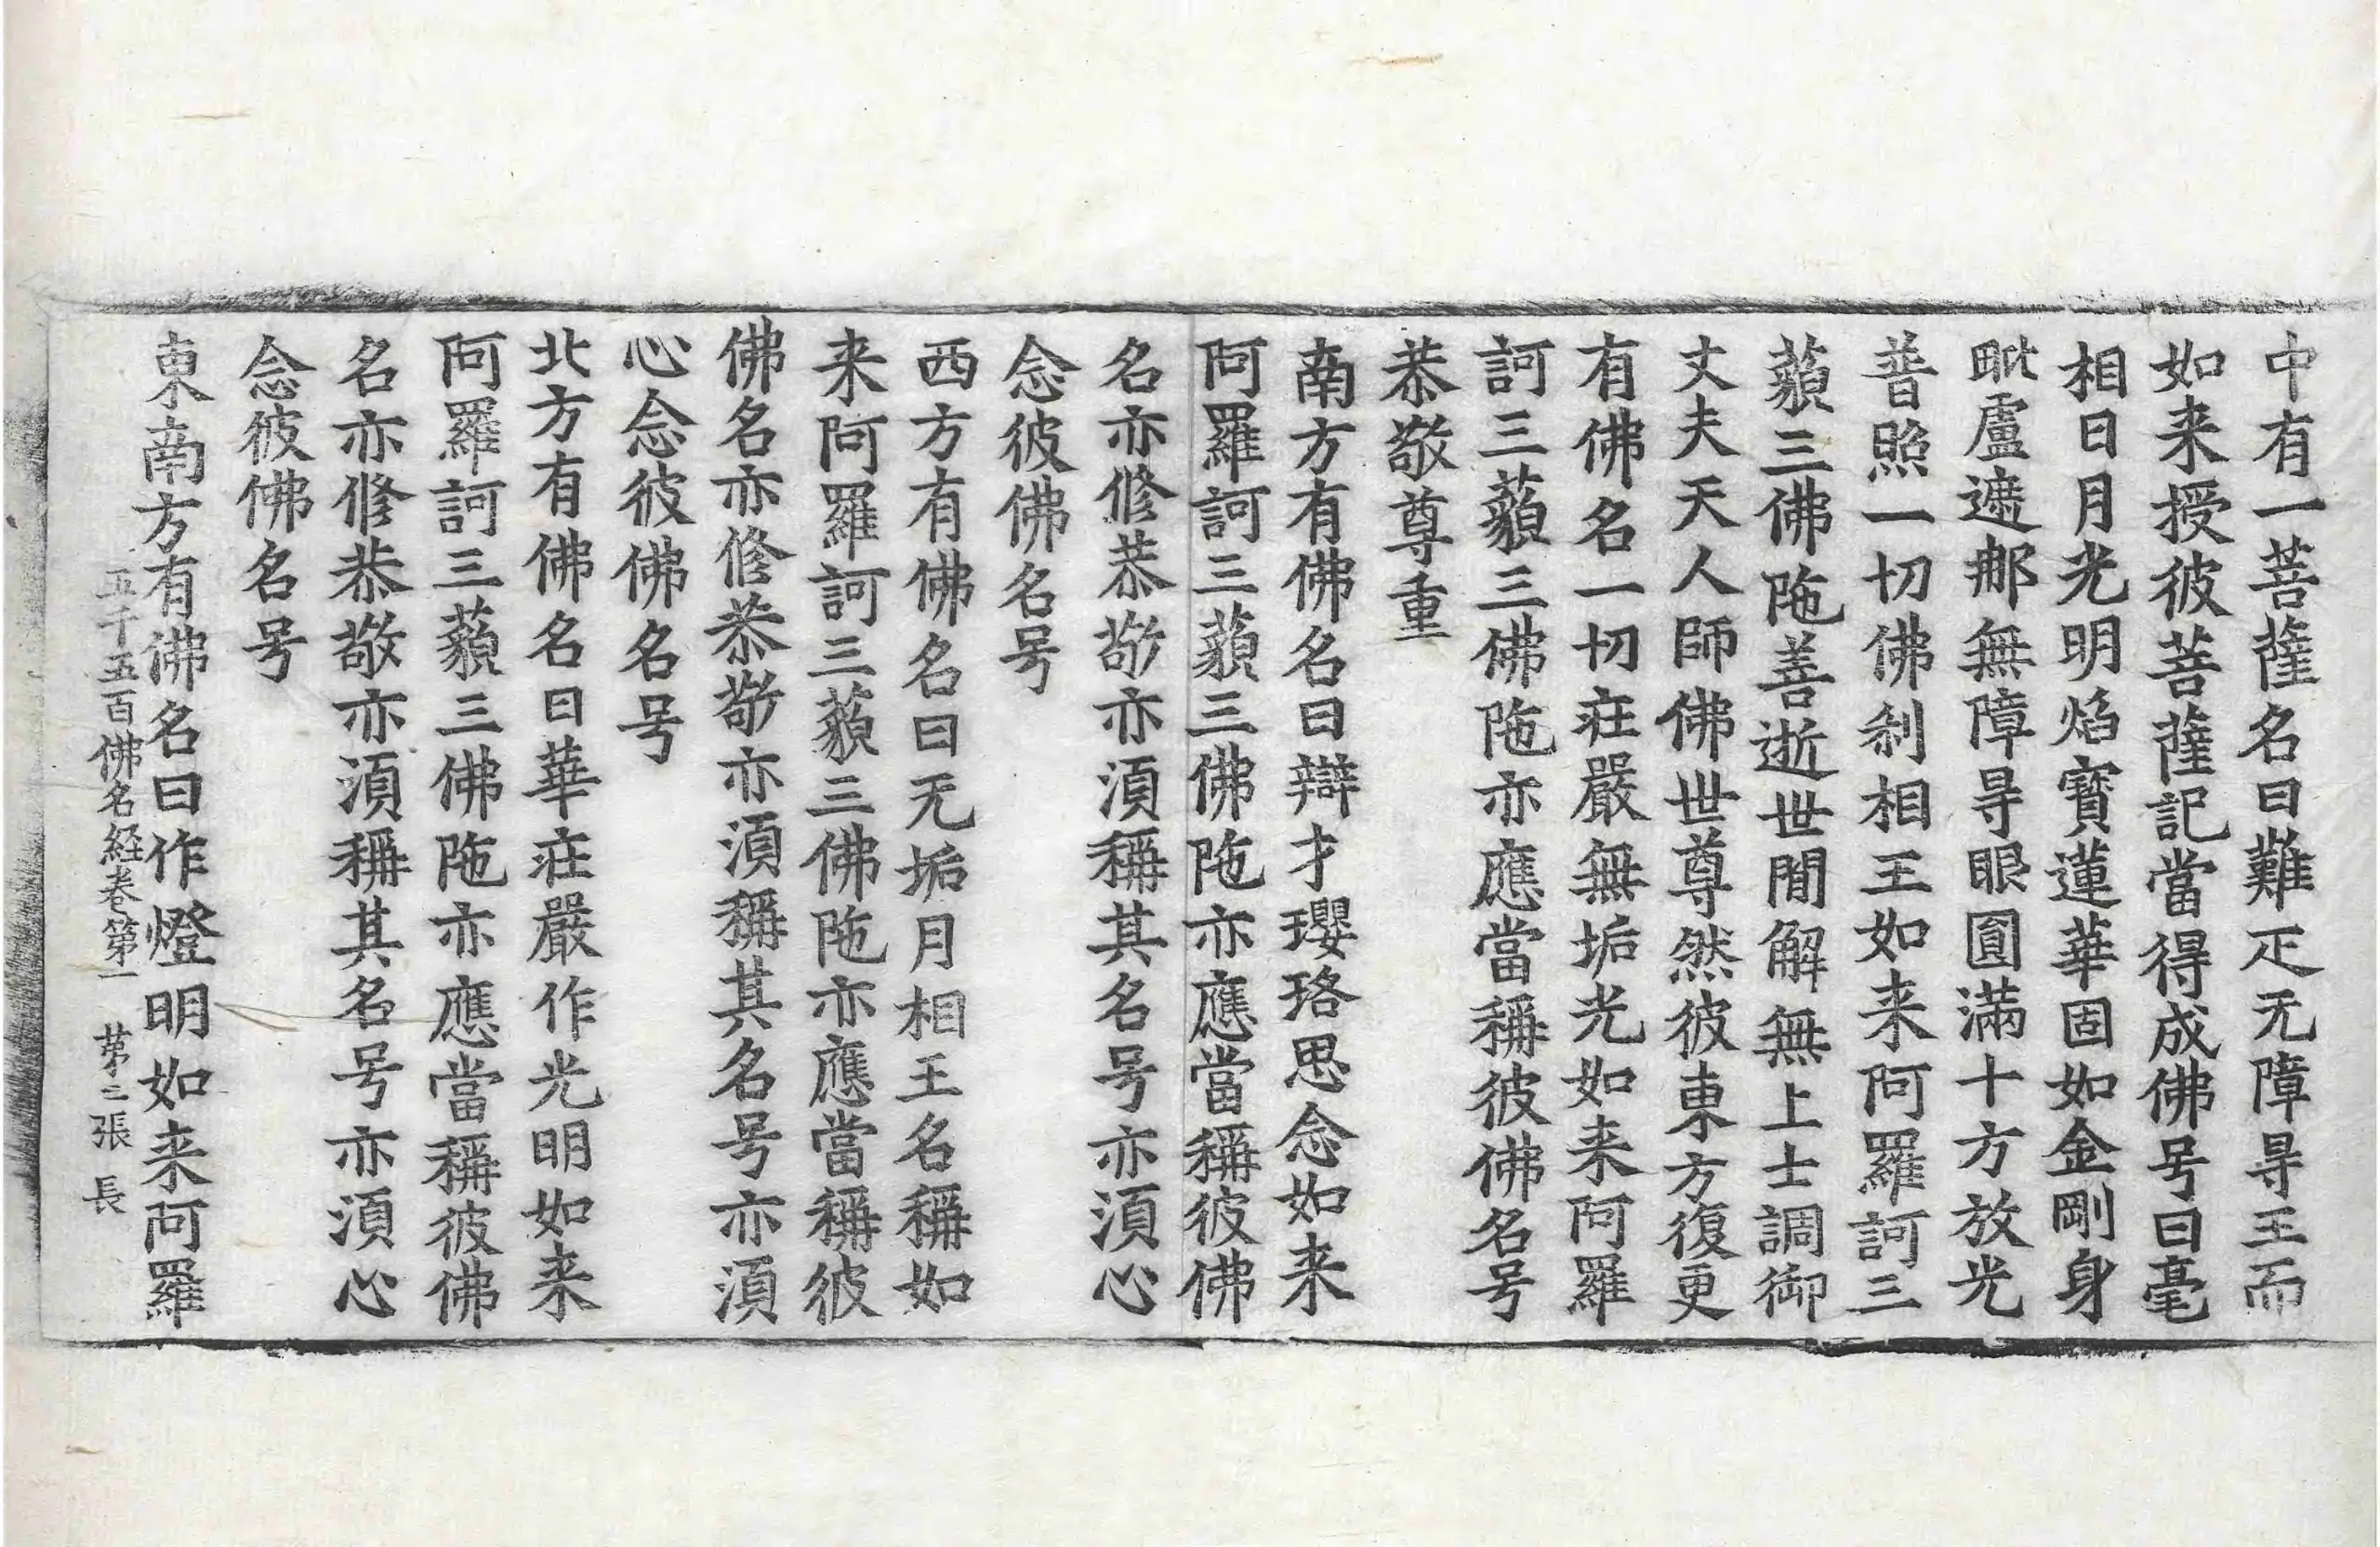 中有一菩薩名曰難疋无障㝵王而
如来授彼菩薩記當得成佛号曰毫
相日月光明焰寳蓮華固如金剛身
毗盧遮那無障㝵眼圓滿十方放光
普照一切佛刹相王如来阿羅訶三
藐三佛陁善逝世閒解無上士調御
丈夫天人師佛世尊然彼東方復更
有佛名一切莊嚴無垢光如来阿羅
訶三藐三佛陁亦應當稱彼佛名号
恭敬尊重
南方有佛名曰辯才瓔珞思念如来
阿羅訶三藐三佛陁亦應當稱彼佛
名亦修恭敬亦湏稱其名号亦湏心
念彼佛名号
西方有佛名曰无垢月相王名稱如
来阿羅訶三藐三佛陁亦應當稱彼
佛名亦修恭敬亦湏稱其名号亦湏
心念彼佛名号
北方有佛名曰華莊嚴作光明如来
阿羅訶三藐三佛陁亦應當稱彼佛
名亦修恭敬亦湏稱其名号亦湏心
念彼佛名号
東南方有佛名曰作燈明如来阿羅
五千五百佛名経卷第一 苐三張 長